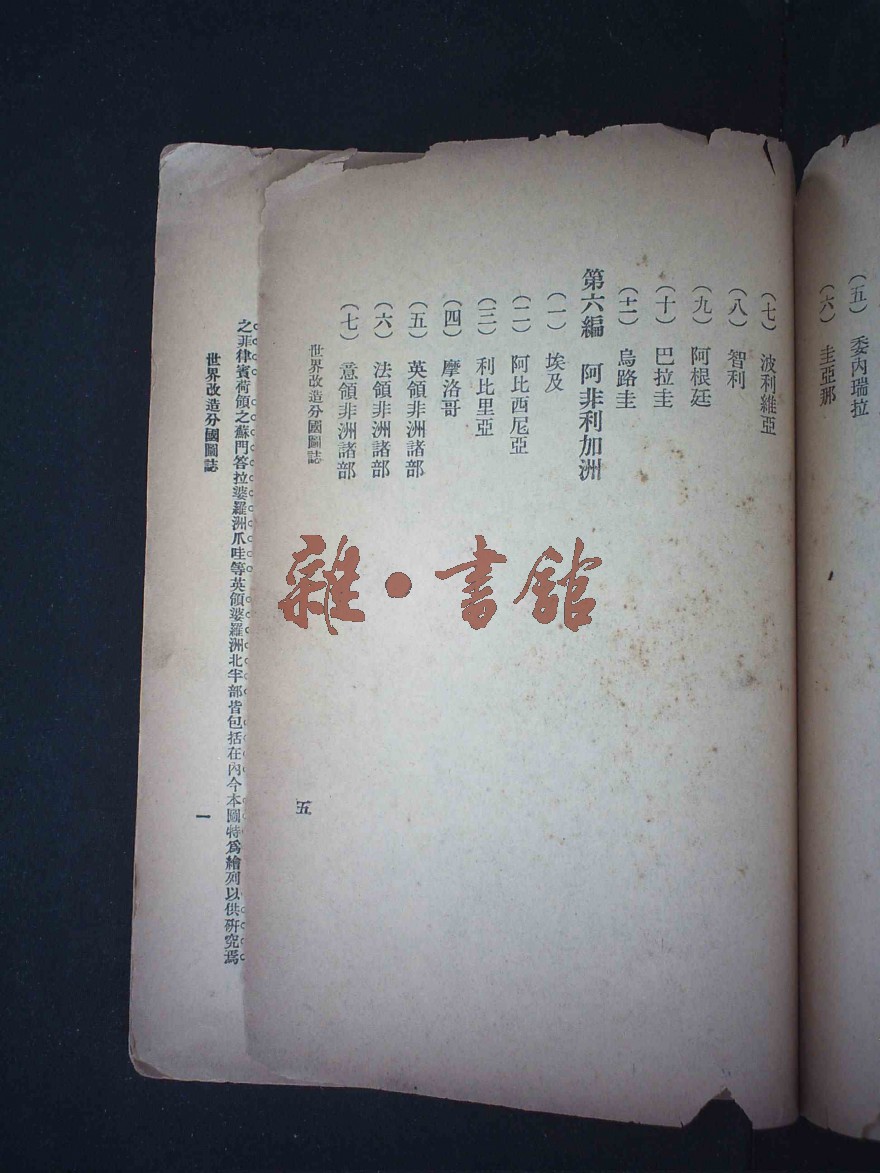 （五）　委內瑞拉
（六）　圭亞那
（七）　波利維亞
（八）　智利
（九）　阿根廷
（十）　巴拉圭
（十一）　烏路圭
第六編　阿非利加洲
（一）　埃及
（二）　阿比西尼亞
（三）　利比里亞
（四）　摩洛哥
（五）　英領非洲諸部
（六）　法領非洲諸部
（七）　意領非洲諸部
世界改造分國圖誌
五
之菲律賓荷領之蘇門答拉婆羅洲爪哇等英領婆羅洲北半部皆包括在內今本圖特爲繪列以供研究焉
世界改造分國圖誌
一
雜·書館